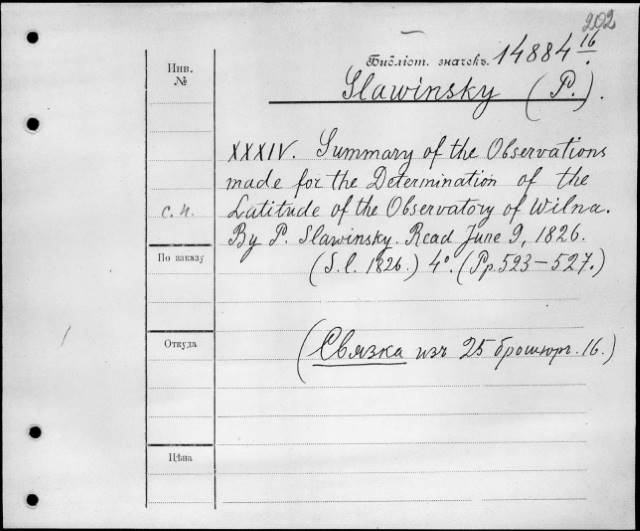 202
Библіот. значекъ. 14884 16.
Инв.
№
Slawinsky (P.).
XXXIV. Summary of the Observations
made for the Determination of the
с. н. Latitude of the Observatory of Wilna.
By P. Slawinsky. Read June 9, 1826.
По заказу (S. l. 1826.) 4°. (Pp. 523–527.)
Откуда (Связка изъ 25 брошюръ. 16.)
Цѣна